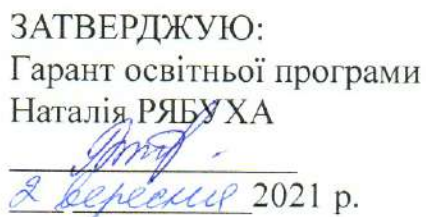 ЗАТВЕРДЖУЮ:
Гарант освітньої програми
Наталія РЯБУХА
2 вересня 2021 р.